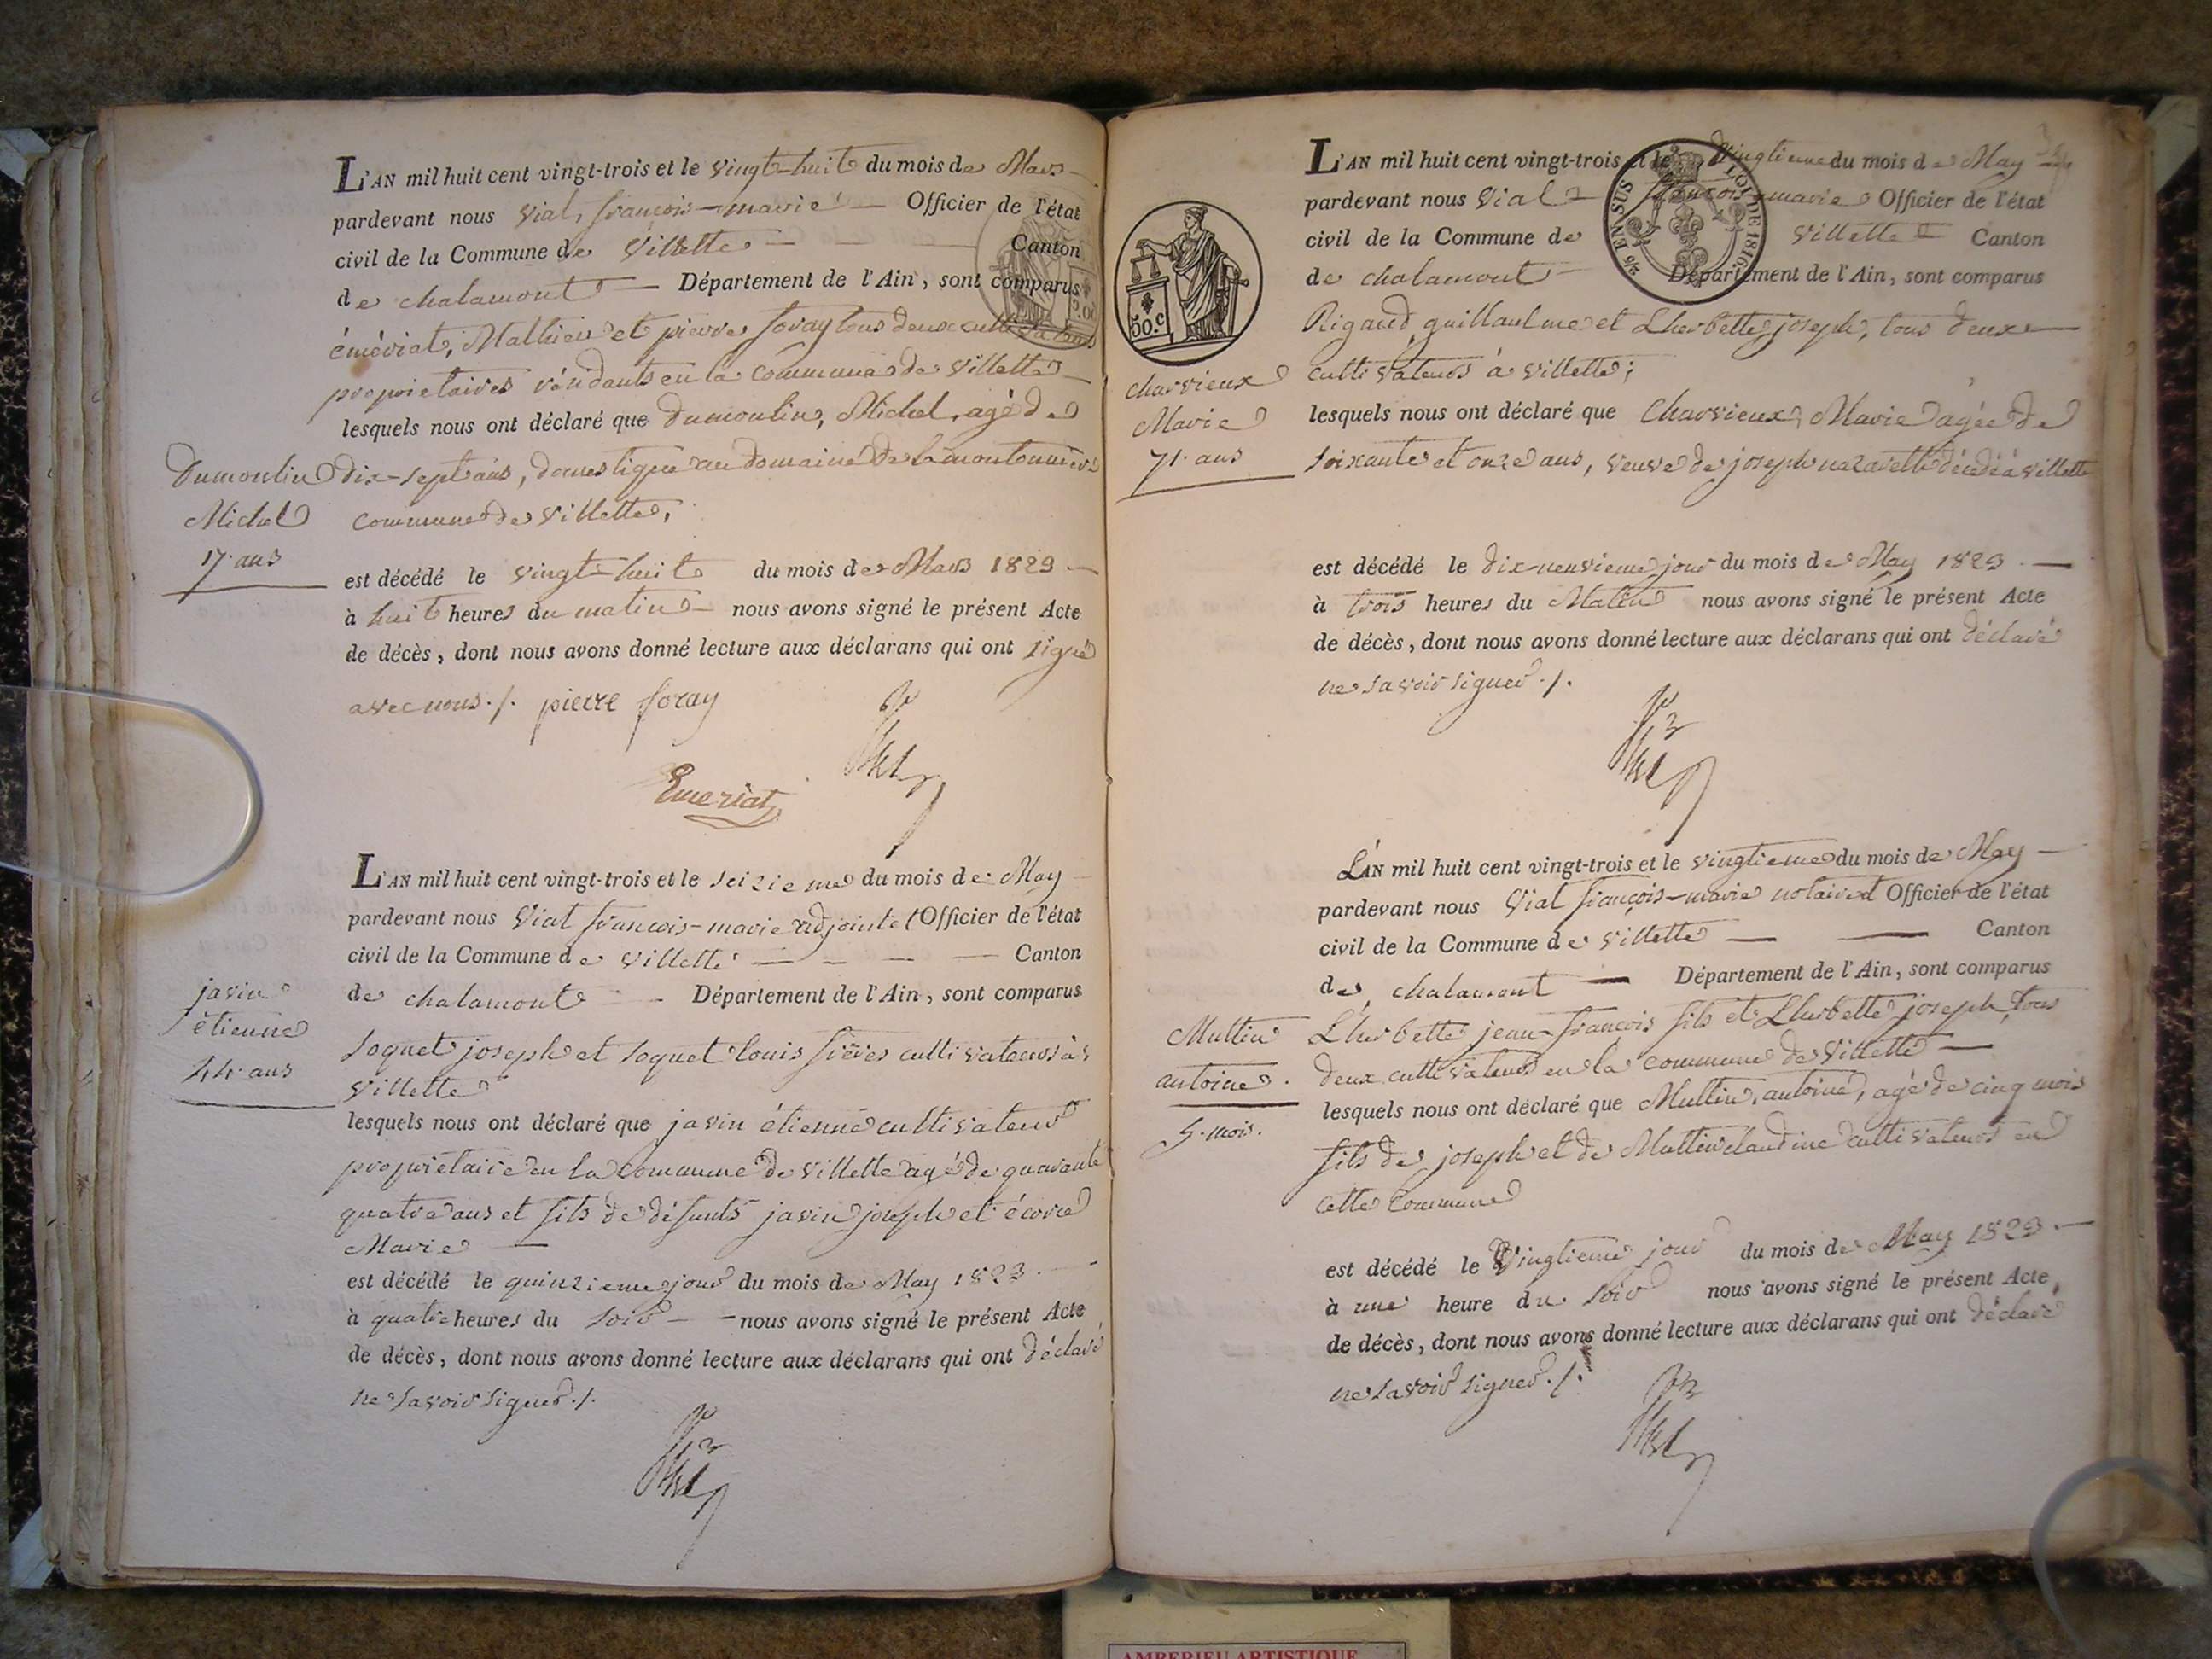 L'AN mil huit cent vingt-trois et le vingt-huit du mois de Mars
pardevant nous Vial, françois-marie Officier de l'état
civil de la Commune de Villette Canton
de chalamont Département de l'Ain, sont comparus
émériat, Mathieu et pierre foray tous deux cultivateurs
propriétaires résidants en la Commune de Villette
lesquels nous ont déclaré que Dumoulin, Michel, agé de
dix-sept ans, domestique au domaine de la montonnière
commune de Villette,
Dumoulin
Michel
17. ans
est décédé le vingt-huit du mois de Mars 1823
à huit heures du matin nous avons signé le présent Acte
de décès, dont nous avons donné lecture aux déclarans qui ont signé
avec nous ./. pierre foray
Emeriat
L'AN mil huit cent vingt-trois et le seizieme du mois de May
pardevant nous Vial françois-marie adjoint et Officier de l'état
civil de la Commune de Villette Canton
de chalamont Département de l'Ain, sont comparus
Soquet joseph et Soquet louis frères cultivateurs à
Villette
javin
étienne
44. ans
lesquels nous ont déclaré que javin étienne cultivateur
propriétaire en la commune de Villette agé de quarante
quatre ans et fils de défunts javin joseph et
Marie
est décédé le quinzieme jour du mois de May 1823
à quatre heures du soir nous avons signé le présent Acte
de décès, dont nous avons donné lecture aux déclarans qui ont déclaré
ne savoir signer ./.
L'AN mil huit cent vingt-trois et le vingtieme du mois de May
pardevant nous Vial françois-marie Officier de l'état
civil de la Commune de Villette Canton
de chalamont Département de l'Ain, sont comparus
2/5 EN SUS LOI DE 1816
50.c
Rigaud guillaulme et Lherbette joseph, tous deux
cultivateurs à Villette;
charvieux
Marie
71. ans
lesquels nous ont déclaré que Charvieux, Marie agée de
soixante et onze ans, veuve de joseph décédé à villette
est décédé le dix-neuvieme jour du mois de May 1823
à trois heures du Matin nous avons signé le présent Acte
de décès, dont nous avons donné lecture aux déclarans qui ont déclaré
ne savoir signer ./.
L'AN mil huit cent vingt-trois et le vingtieme du mois de May
pardevant nous Vial françois-marie notaire et Officier de l'état
civil de la Commune de Villette Canton
de chalamont Département de l'Ain, sont comparus
Lherbette jean-françois fils et Lherbette joseph tous
deux cultivateurs en la commune de Villette
Multin
antoine.
5. mois.
lesquels nous ont déclaré que Multin, antoine, agé de cinq mois
fils de joseph et de Multin claudine cultivateurs en
cette Commune
est décédé le Vingtieme jour du mois de May 1823
à une heure du soir nous avons signé le présent Acte
de décès, dont nous avons donné lecture aux déclarans qui ont déclaré
ne savoir signer ./.
AMBERIEU ARTISTIQUE